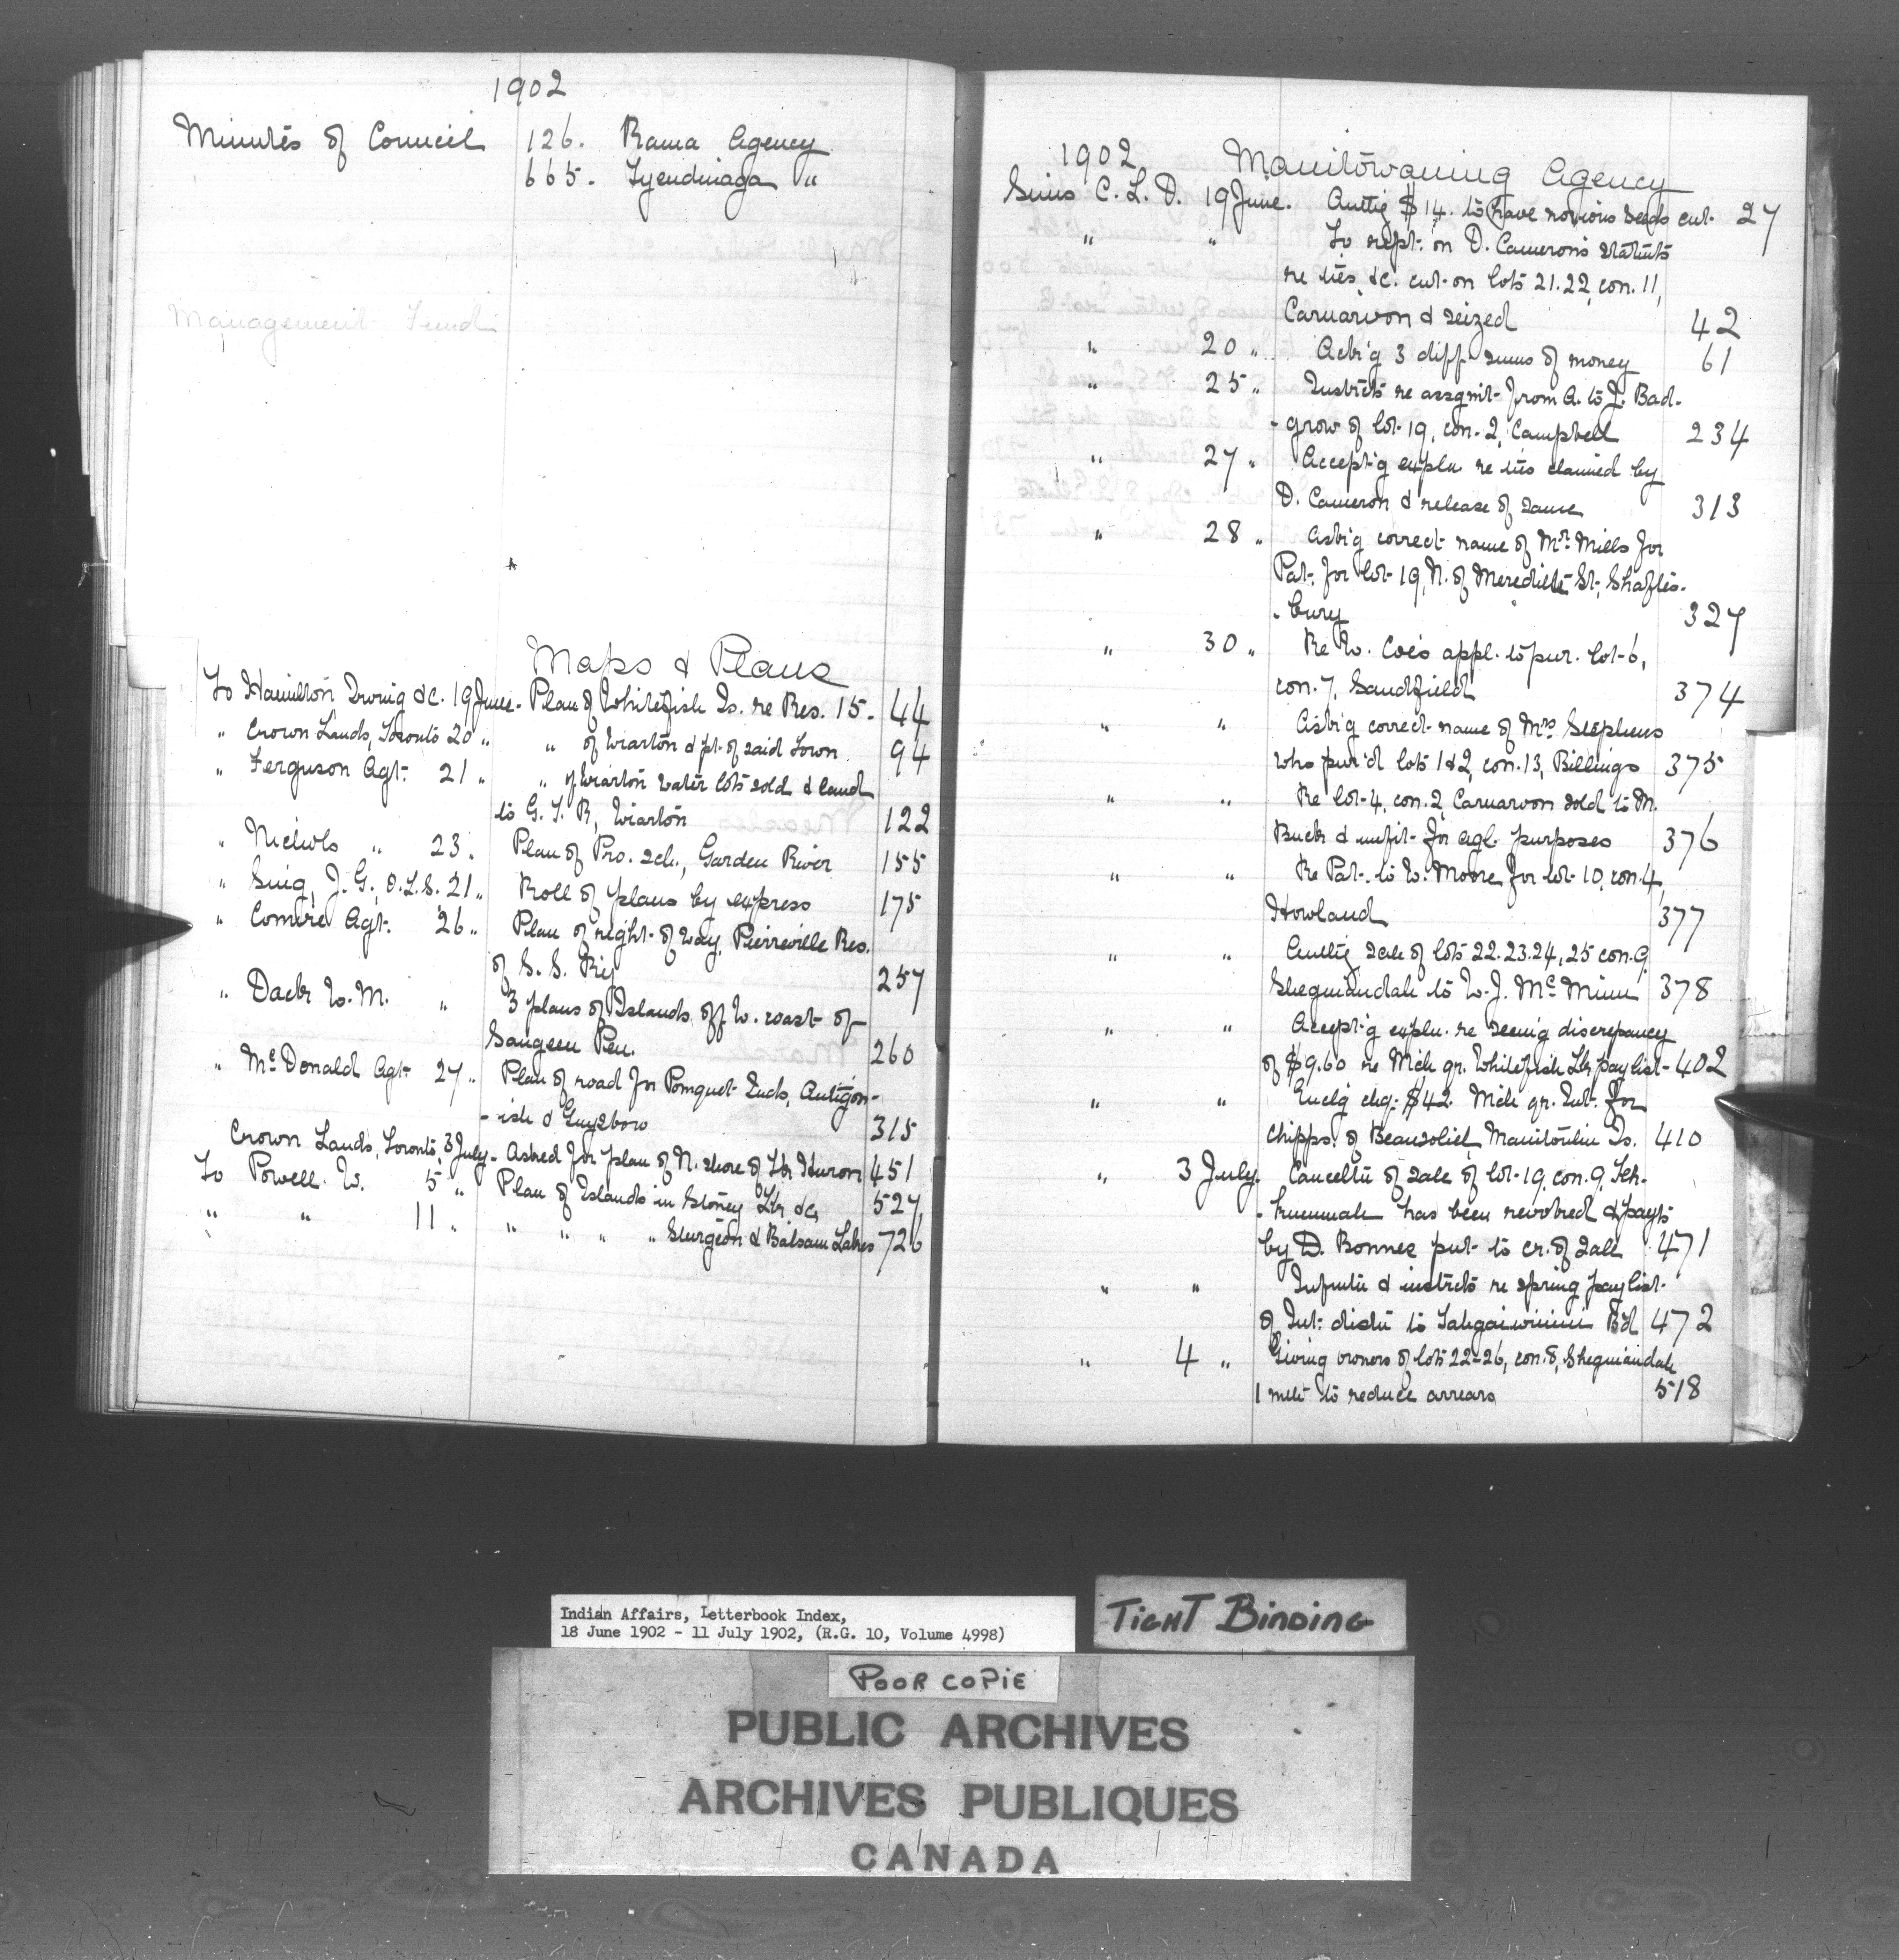 1902
Minutes of Council 126. Rama Agency
665. Tyendinaga "
Management Fund
Maps & Plans
To Hamilton Irving &c. 19 June. Plan of Whitefish Is. re Res. 15. 44
" Crown Lands, Toronto 20 " " of Wiarton & pt. of said Town 94
" Ferguson Agt. 21 " " of Wiarton water lots sold & land
to G. T. R, Wiarton 122
" Nichols " 23. Plan of Pro. sch., Garden River 155
" Sing, J. G., O.L.S. 21 " Roll of plans by express 175
" Comire Agt. 26 " Plan of right-of way, Pierreville Res.
of S. S. Ry 257
" Dack W. M. " 3 plans of Islands off W. coast of
Saugeen Pen. 260
" McDonald Agt. 27 " Plan of road for Pomquet Inds, Antigon-
-ish & Guysboro 315
Crown Lands, Toronto, 3 July - Asked for plan of N. shore of Lk Huron 451
To Powell. W. 5 " Plan of Islands in Stoney Lk &c 527
" " 11 " " " " " Sturgeon & Balsam Lakes 726
1902 Manitowaning Agency
Sims C. L. D. 19 June. Authg $14. to have noxious seeds cut 27
" " To rept. on D. Cameron's statmts
re ties &c. cut on lots 21.22, con. 11,
Carnarvon & seized 42
" 20 " Ack'g 3 diff sums of money 61
" 25 " Instrcts re assgmt from A. to J. Bad-
-grow of lot 19, con. 2, Campbell 234
" 27 " Accept'g expln re ties claimed by
D. Cameron & release of same 313
" 28 " Ask'g correct name of Mr. Mills for
Pat. for lot 19, N. of Meredith St., Shaftes-
-bury 327
" 30 " Re W. Coe's appl. to pur. lot 6,
con. 7, Sandfield 374
" " Ask'g correct name of Mrs Stephens
who pur'd lots 1&2, con. 13, Billings 375
" " Re lot 4, con. 2, Carnarvon sold to M.
Buck & unfit for agl. purposes 376
" " Re Pat. to W. Moore for lot 10, con. 4,
Howland 377
" " Authg sale of lots 22.23.24, 25 con. 9,
Sheguiandah to W. J. McMinn 378
" " Accept'g expln. re seeing discrepancy
of $9.60 re Mich gr. Whitefish Lk paylist 402
" " Enclg chq. $42. Mich gr. Int. for
Chipps. of Beausoliel, Manitoulin Is. 410
" 3 July. Cancelltn of sale of lot 19, con. 9, Teh-
-kummah has been revoked & payts
by D. Bonnes put to cr. of sale 471
" " Infmtn & instrcts re spring paylist
of Int. distn to Tahgaiwinini B'd 472
" 4 " Giving owners of lots 22-26, con. 8, Sheguiandah
1 mth to reduce arrears 518
Indian Affairs, Letterbook Index,
18 June 1902 - 11 July 1902, (R.G. 10, Volume 4998)
TIGHT BINDING
POOR COPIE
PUBLIC ARCHIVES
ARCHIVES PUBLIQUES
CANADA